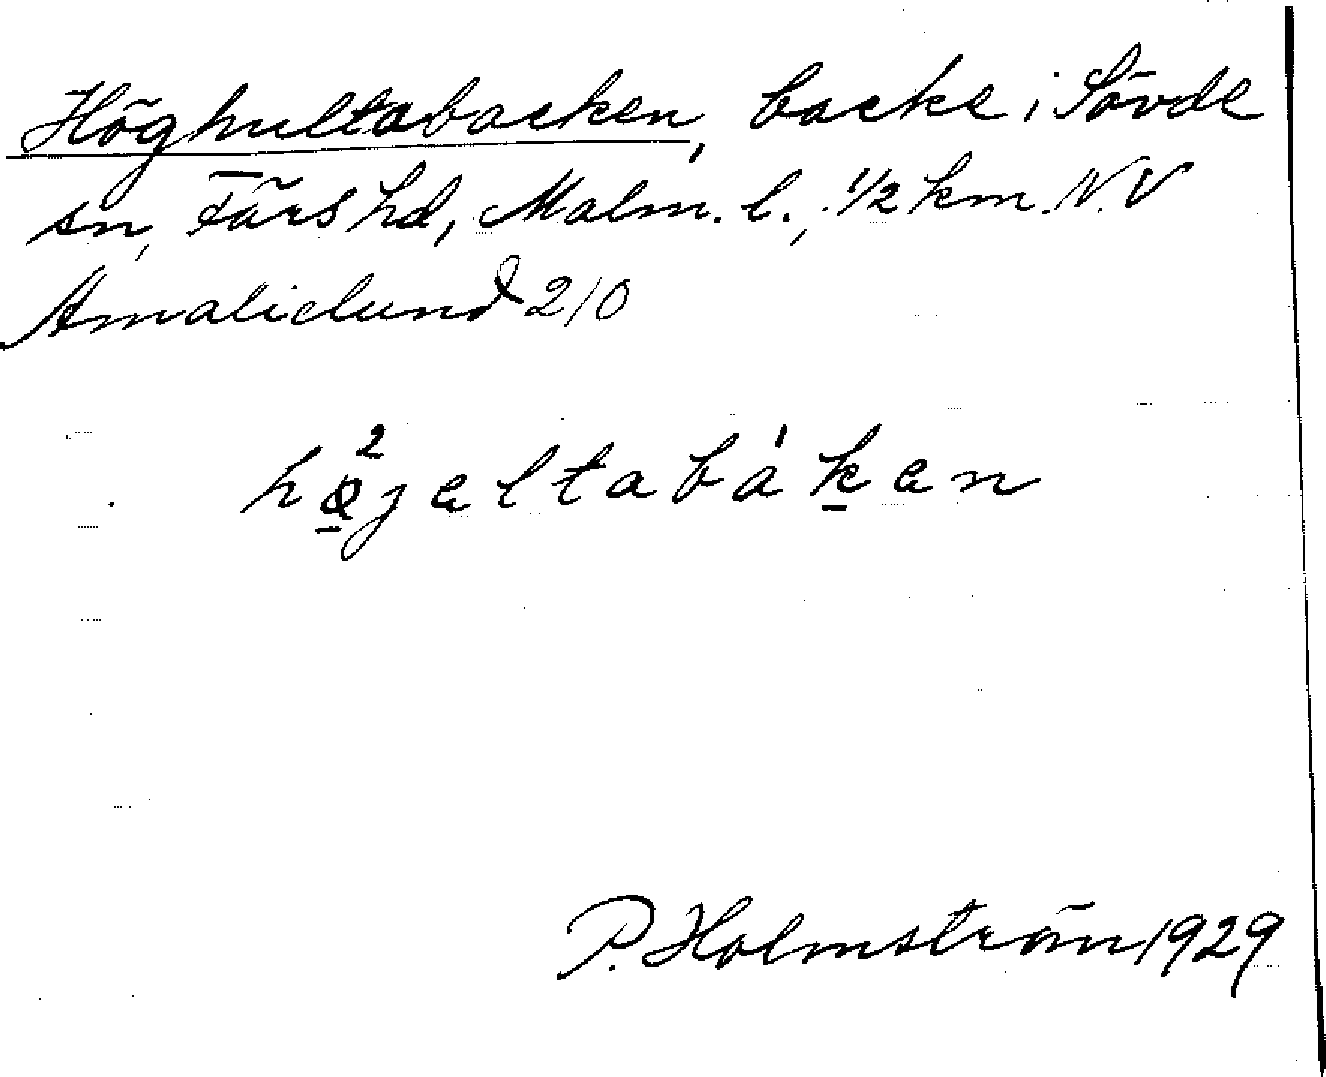 Höghultabacken, backe i Sövde
sn, Färs hd, Malm. l., 1/2 km. N.V
Amalielund 2/0
hø²jeltabá'ken
P. Holmström 1929